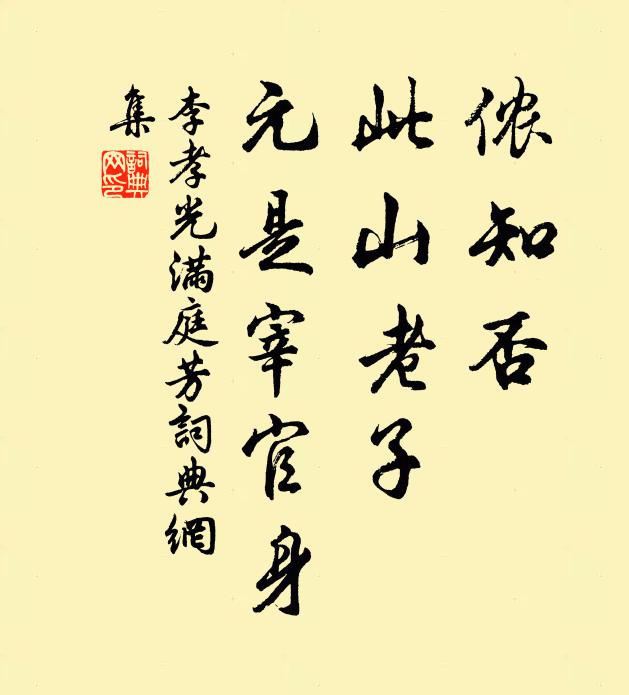 侬知否
此山老子
元是宰官身
李孝光满庭芳詞典網
集
詞典
网印